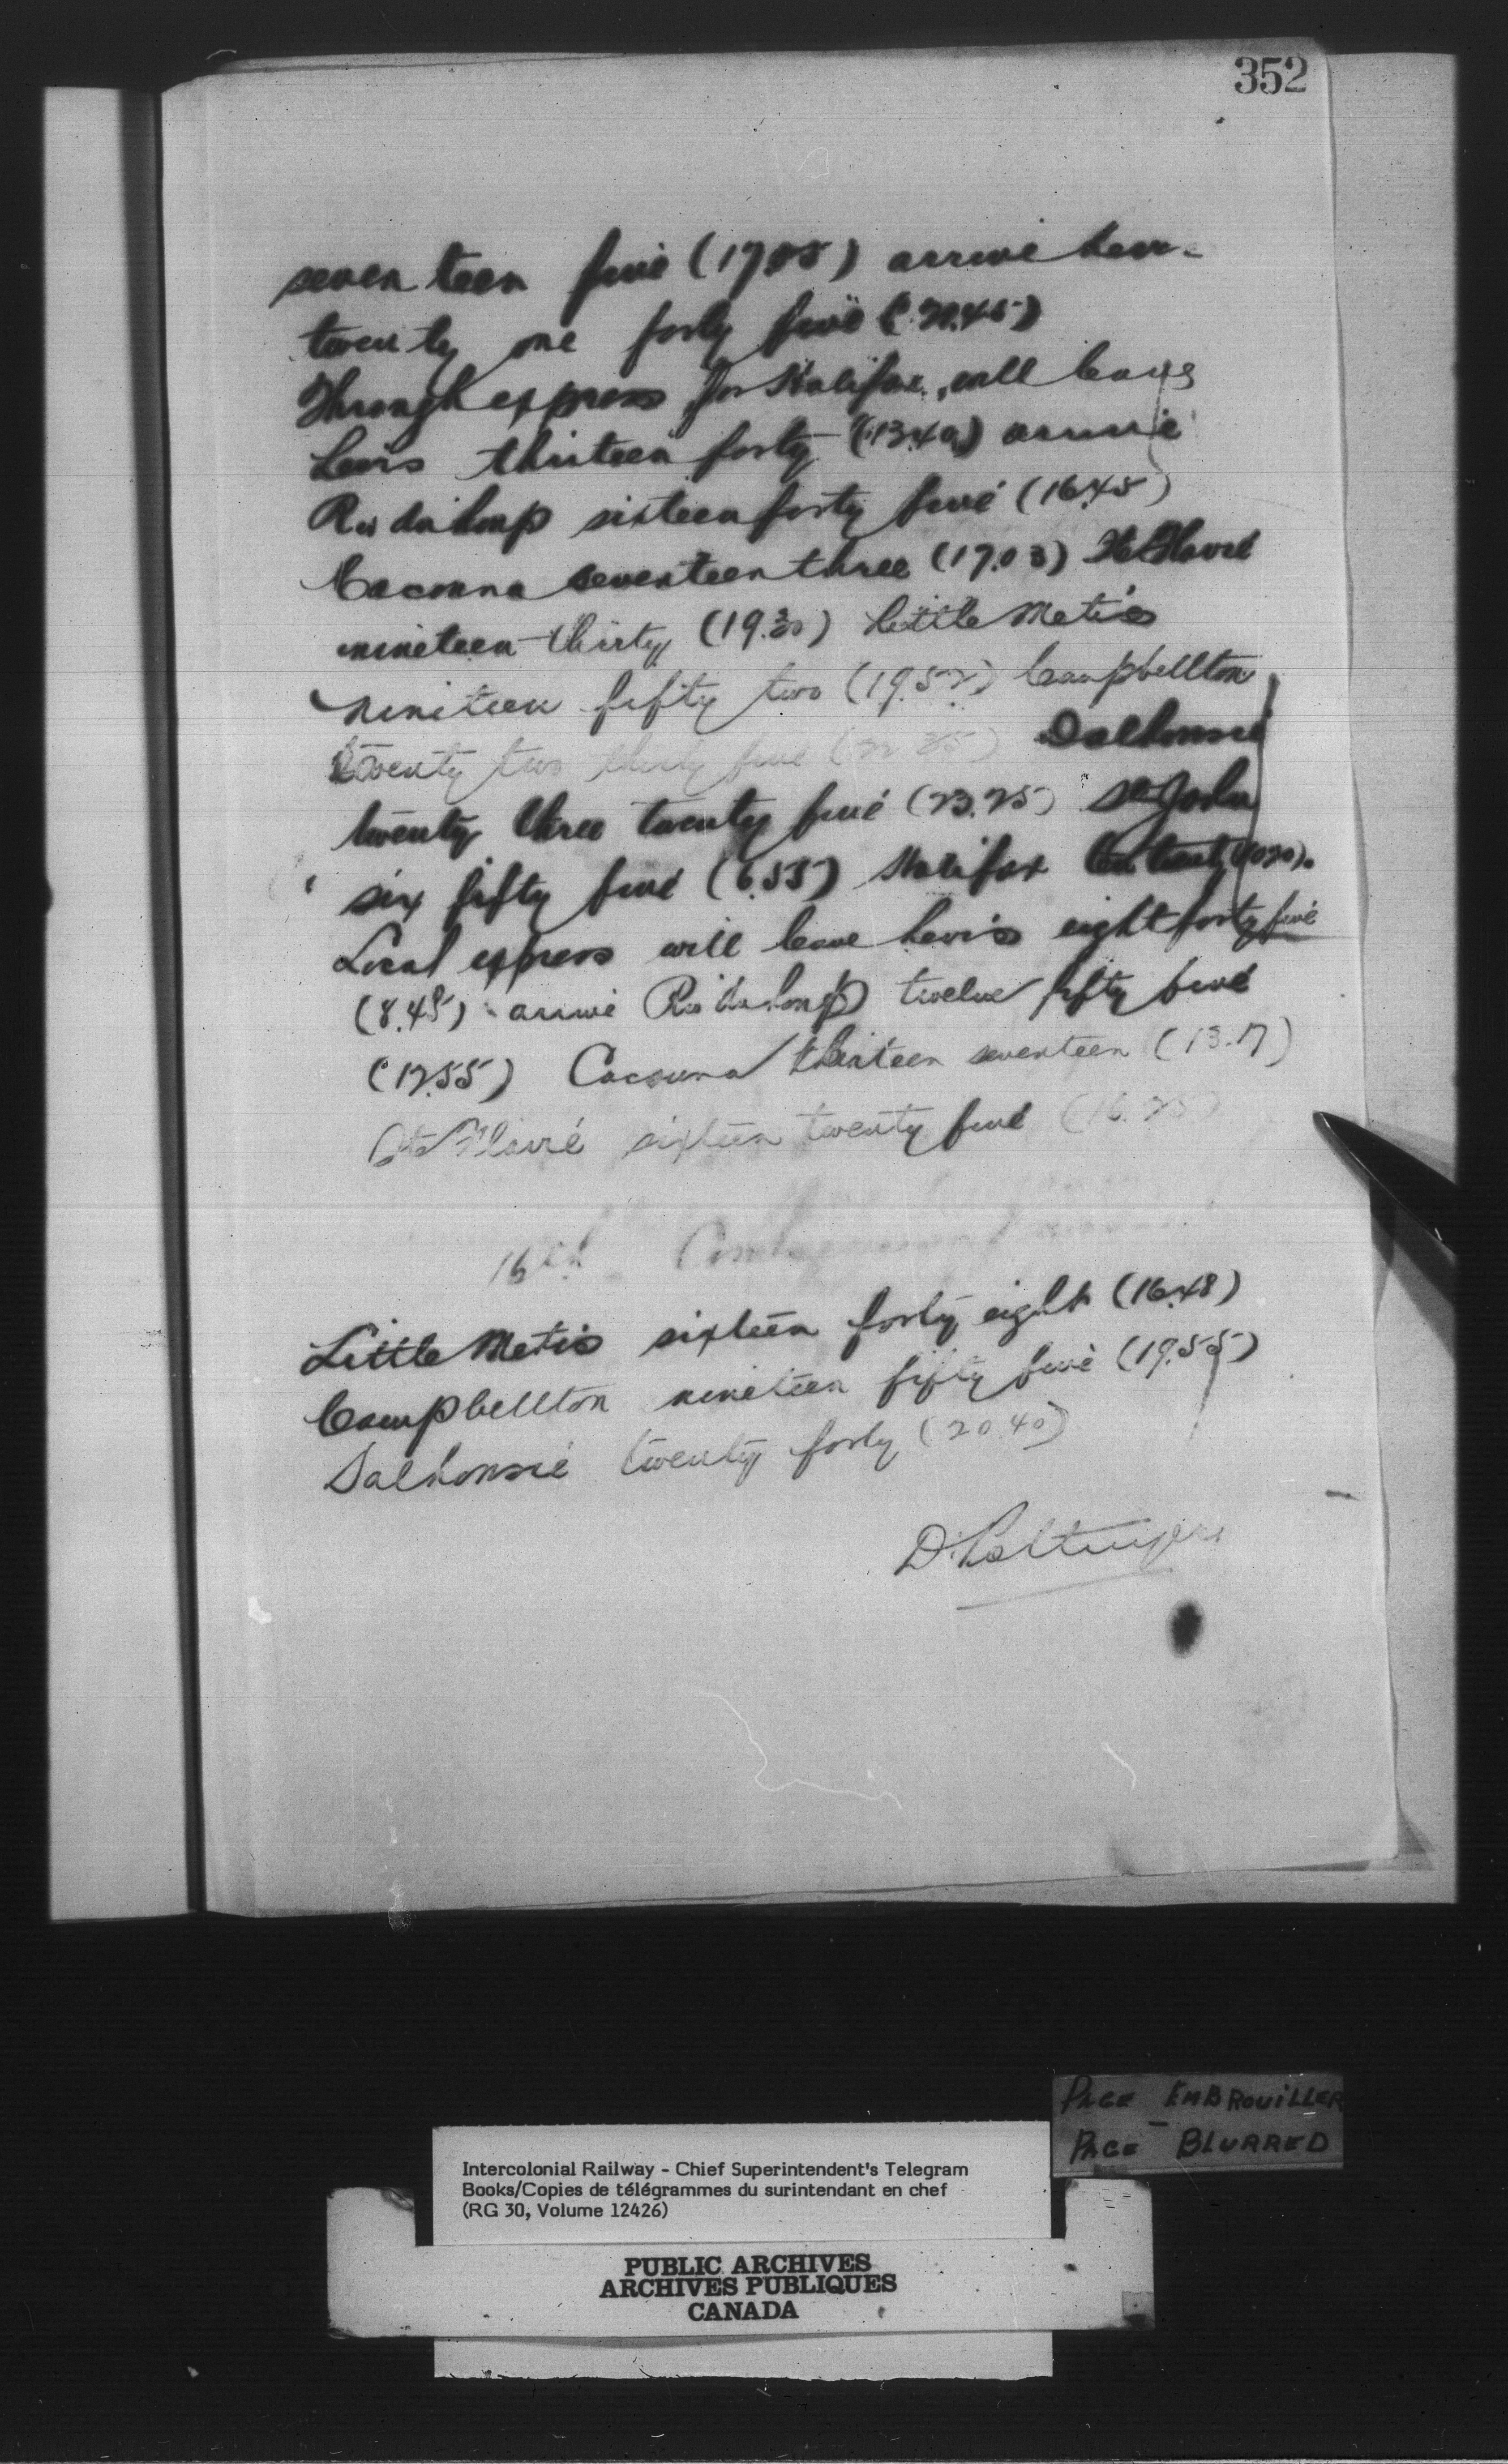 352
seventeen five (17.05) arrive Levis
twenty one forty five (21.45)
Through express for Halifax, will leave
Levis thirteen forty (13.40) arrive
Riv du Loup sixteen forty five (16.45)
Cacouna seventeen three (17.03) Ste Flavie
nineteen thirty (19.30) Little Metis
nineteen fifty two (19.52) Campbellton
twenty two thirty five (22 35) Dalhousie
twenty three twenty five (23.25) St John
six fifty five (6.55) Halifax ten twenty (1020).
Local express will leave Levis eight forty five
(8.45) arrive Riv du Loup twelve fifty five
(12.55) Cacouna thirteen seventeen (13.17)
Ste Flavie sixteen twenty five (16.25)
16th
Little Metis sixteen forty eight (16.48)
Campbellton nineteen fifty five (19.55)
Dalhousie twenty forty (20.40)
D. Pottinger
PAGE EMBROUILLER
PAGE BLURRED
Intercolonial Railway - Chief Superintendent's Telegram
Books/Copies de télégrammes du surintendant en chef
(RG 30, Volume 12426)
PUBLIC ARCHIVES
ARCHIVES PUBLIQUES
CANADA